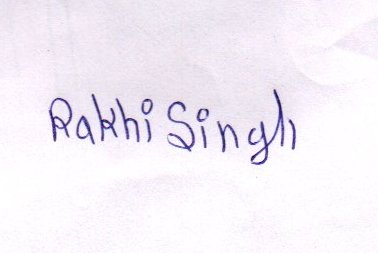 Rakhi Singh